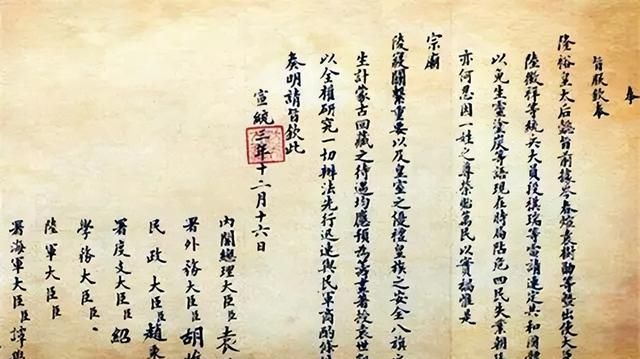 奉
旨朕欽奉
隆裕皇太后懿旨前據岑春煊袁樹勛等暨出使大
陸徵祥等統兵大員段祺瑞等電請速定共和國體
以免生靈塗炭等語現在時局阽危四民失業朝廷
亦何忍因一姓之尊榮貽萬民以實禍惟是
宗廟
陵寢關繫重要以及皇室之優禮皇族之安全八旗之
生計蒙古回藏之待遇均應預為籌畫著授袁世凱
以全權研究一切辦法先行迅速與民軍商酌條
奏明請旨欽此
宣統三年十二月十六日
內閣總理大臣臣袁
署外務大臣臣胡
民政大臣臣趙秉
署度支大臣臣紹
學務大臣臣
陸軍大臣臣
署海軍大臣臣譚學